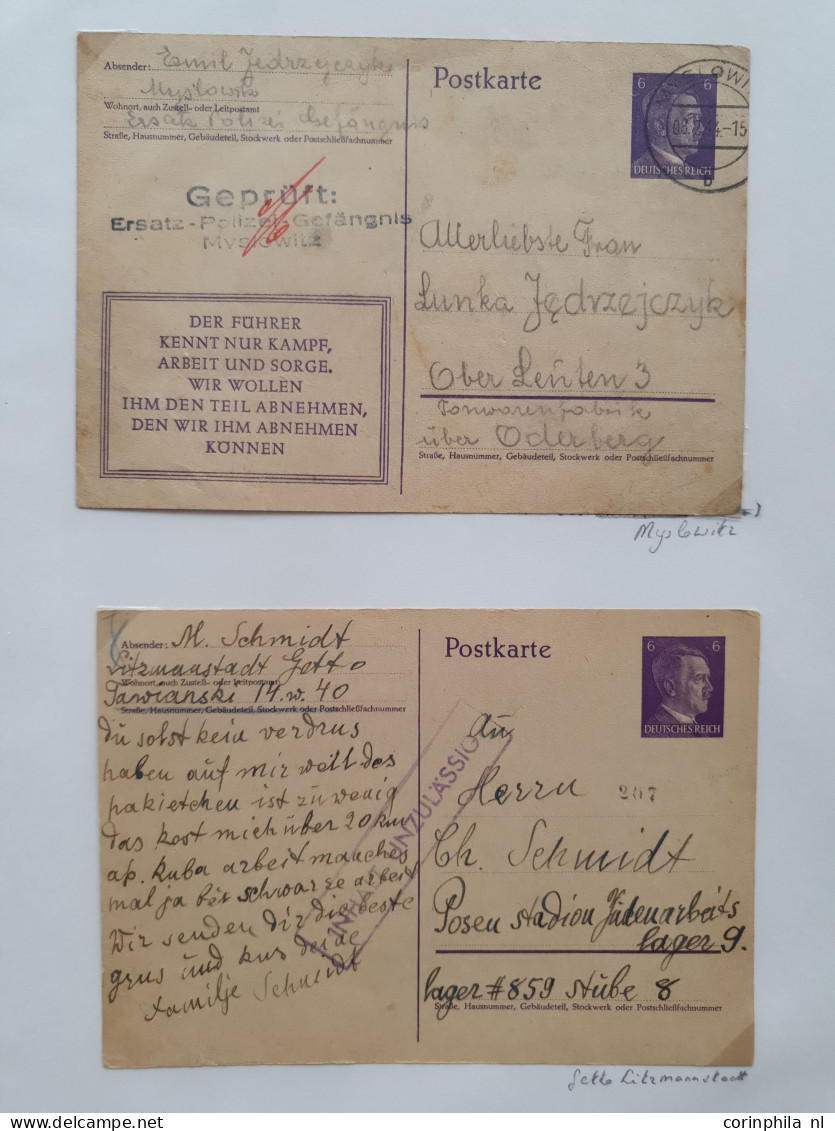 Absender: Emil Jędrzejczyk
Myslowitz
Wohnort, auch Zustell- oder Leitpostamt
Ersatz Polizei Gefängnis
Straße, Hausnummer, Gebäudeteil, Stockwerk oder Postschließfachnummer
Geprüft:
Ersatz-Polizei-Gefängnis
Myslowitz
DER FÜHRER
KENNT NUR KAMPF,
ARBEIT UND SORGE.
WIR WOLLEN
IHM DEN TEIL ABNEHMEN,
DEN WIR IHM ABNEHMEN
KÖNNEN
Postkarte
6 6
DEUTSCHES REICH
b
Allerliebste Frau
Lunka Jędrzejczyk
Ober Leuten 3
Tonwarenfabrik
über Oderberg
Straße, Hausnummer, Gebäudeteil, Stockwerk oder Postschließfachnummer
Myslowitz
Absender: M. Schmidt
Litzmannstadt Getto
Wohnort, auch Zustell- oder Leitpostamt
14. w. 40
Straße, Hausnummer, Gebäudeteil, Stockwerk oder Postschließfachnummer
du solst kein verdrus
haben auf mir weill des
pakietchen ist zu wenig
das kost mich über 20
ap. Ruba arbeit manches
mal ja bei schwarze arbeit
Wir senden dir die beste
grus und kus deine
Familje Schmidt
INHALT UNZULÄSSIG
Postkarte
6 6
DEUTSCHES REICH
An
Herrn 207
Ch. Schmidt
Posen Stadion Judenarbeits
lager 9.
lager #859 stube 8
Straße, Hausnummer, Gebäudeteil, Stockwerk oder Postschließfachnummer
Getto Litzmannstadt
www.corinphila nl